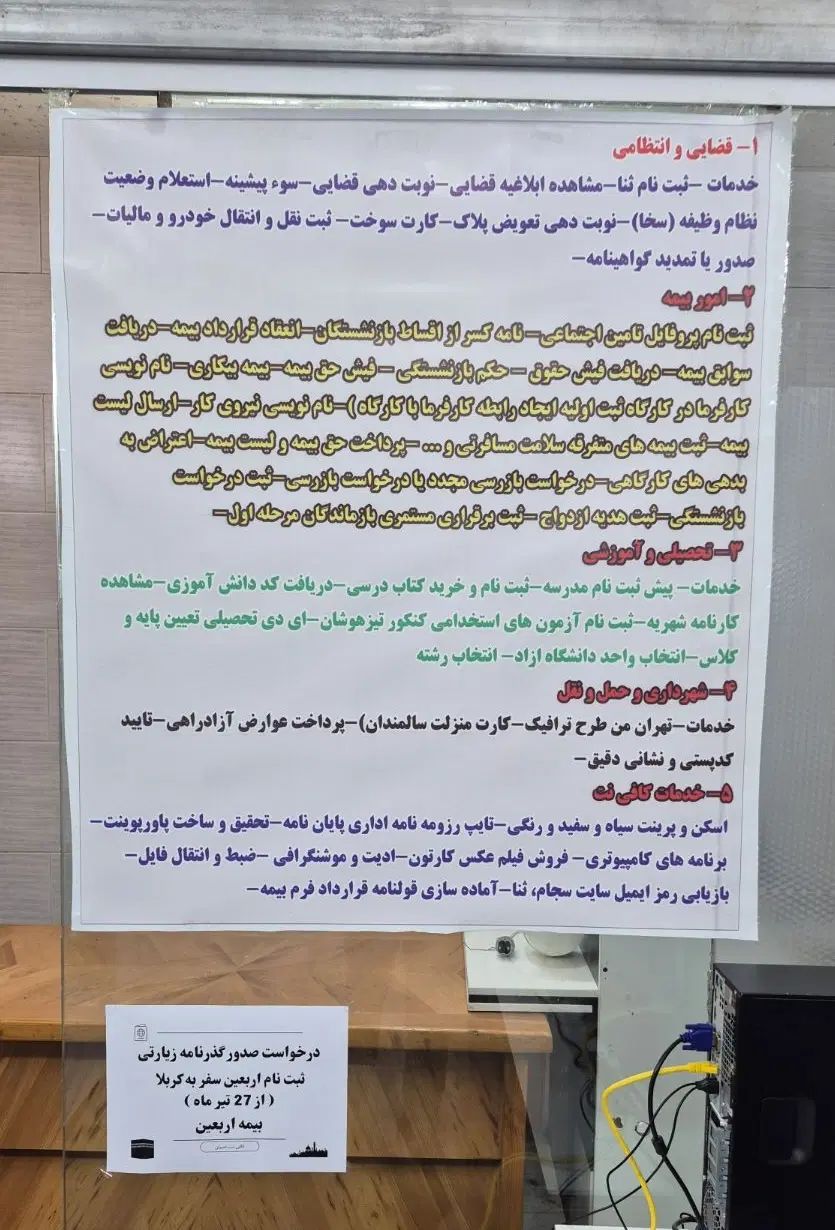 ۱- قضایی و انتظامی
خدمات -ثبت نام ثنا-مشاهده ابلاغیه قضایی-نوبت دهی قضایی-سوء پیشینه-استعلام وضعیت
نظام وظیفه (سخا)-نوبت دهی تعویض پلاک-کارت سوخت- ثبت نقل و انتقال خودرو و مالیات-
صدور یا تمدید گواهینامه-
۲- امور بیمه
ثبت نام پروفایل تامین اجتماعی- نامه کسر از اقساط بازنشستگان-انعقاد قرارداد بیمه-دریافت
سوابق بیمه- دریافت فیش حقوق - حکم بازنشستگی - فیش حق بیمه-بیمه بیکاری- نام نویسی
کارفرما در کارگاه ثبت اولیه ایجاد رابطه کارفرما با کارگاه )-نام نویسی نیروی کار-ارسال لیست
بیمه-ثبت بیمه های متفرقه سلامت مسافرتی و ... -پرداخت حق بیمه و لیست بیمه-اعتراض به
بدهی های کارگاهی-درخواست بازرسی مجدد یا درخواست بازرسی-ثبت درخواست
بازنشستگی-ثبت هدیه ازدواج -ثبت برقراری مستمری بازماندگان مرحله اول-
۳- تحصیلی و آموزشی
خدمات- پیش ثبت نام مدرسه-ثبت نام و خرید کتاب درسی-دریافت کد دانش آموزی-مشاهده
کارنامه شهریه-ثبت نام آزمون های استخدامی کنکور تیزهوشان-ای دی تحصیلی تعیین پایه و
کلاس-انتخاب واحد دانشگاه ازاد- انتخاب رشته
۴- شهرداری و حمل و نقل
خدمات-تهران من طرح ترافیک-کارت منزلت سالمندان)-پرداخت عوارض آزادراهی-تایید
کدپستی و نشانی دقیق-
۵- خدمات کافی نت
اسکن و پرینت سیاه و سفید و رنگی-تایپ رزومه نامه اداری پایان نامه-تحقیق و ساخت پاورپوینت-
برنامه های کامپیوتری- فروش فیلم عکس کارتون-ادیت و موشنگرافی -ضبط و انتقال فایل-
بازیابی رمز ایمیل سایت سجام، ثنا-آماده سازی قولنامه قرارداد فرم بیمه-
درخواست صدور گذرنامه زیارتی
ثبت نام اربعین سفر به کربلا
( از 27 تیر ماه )
بیمه اربعین